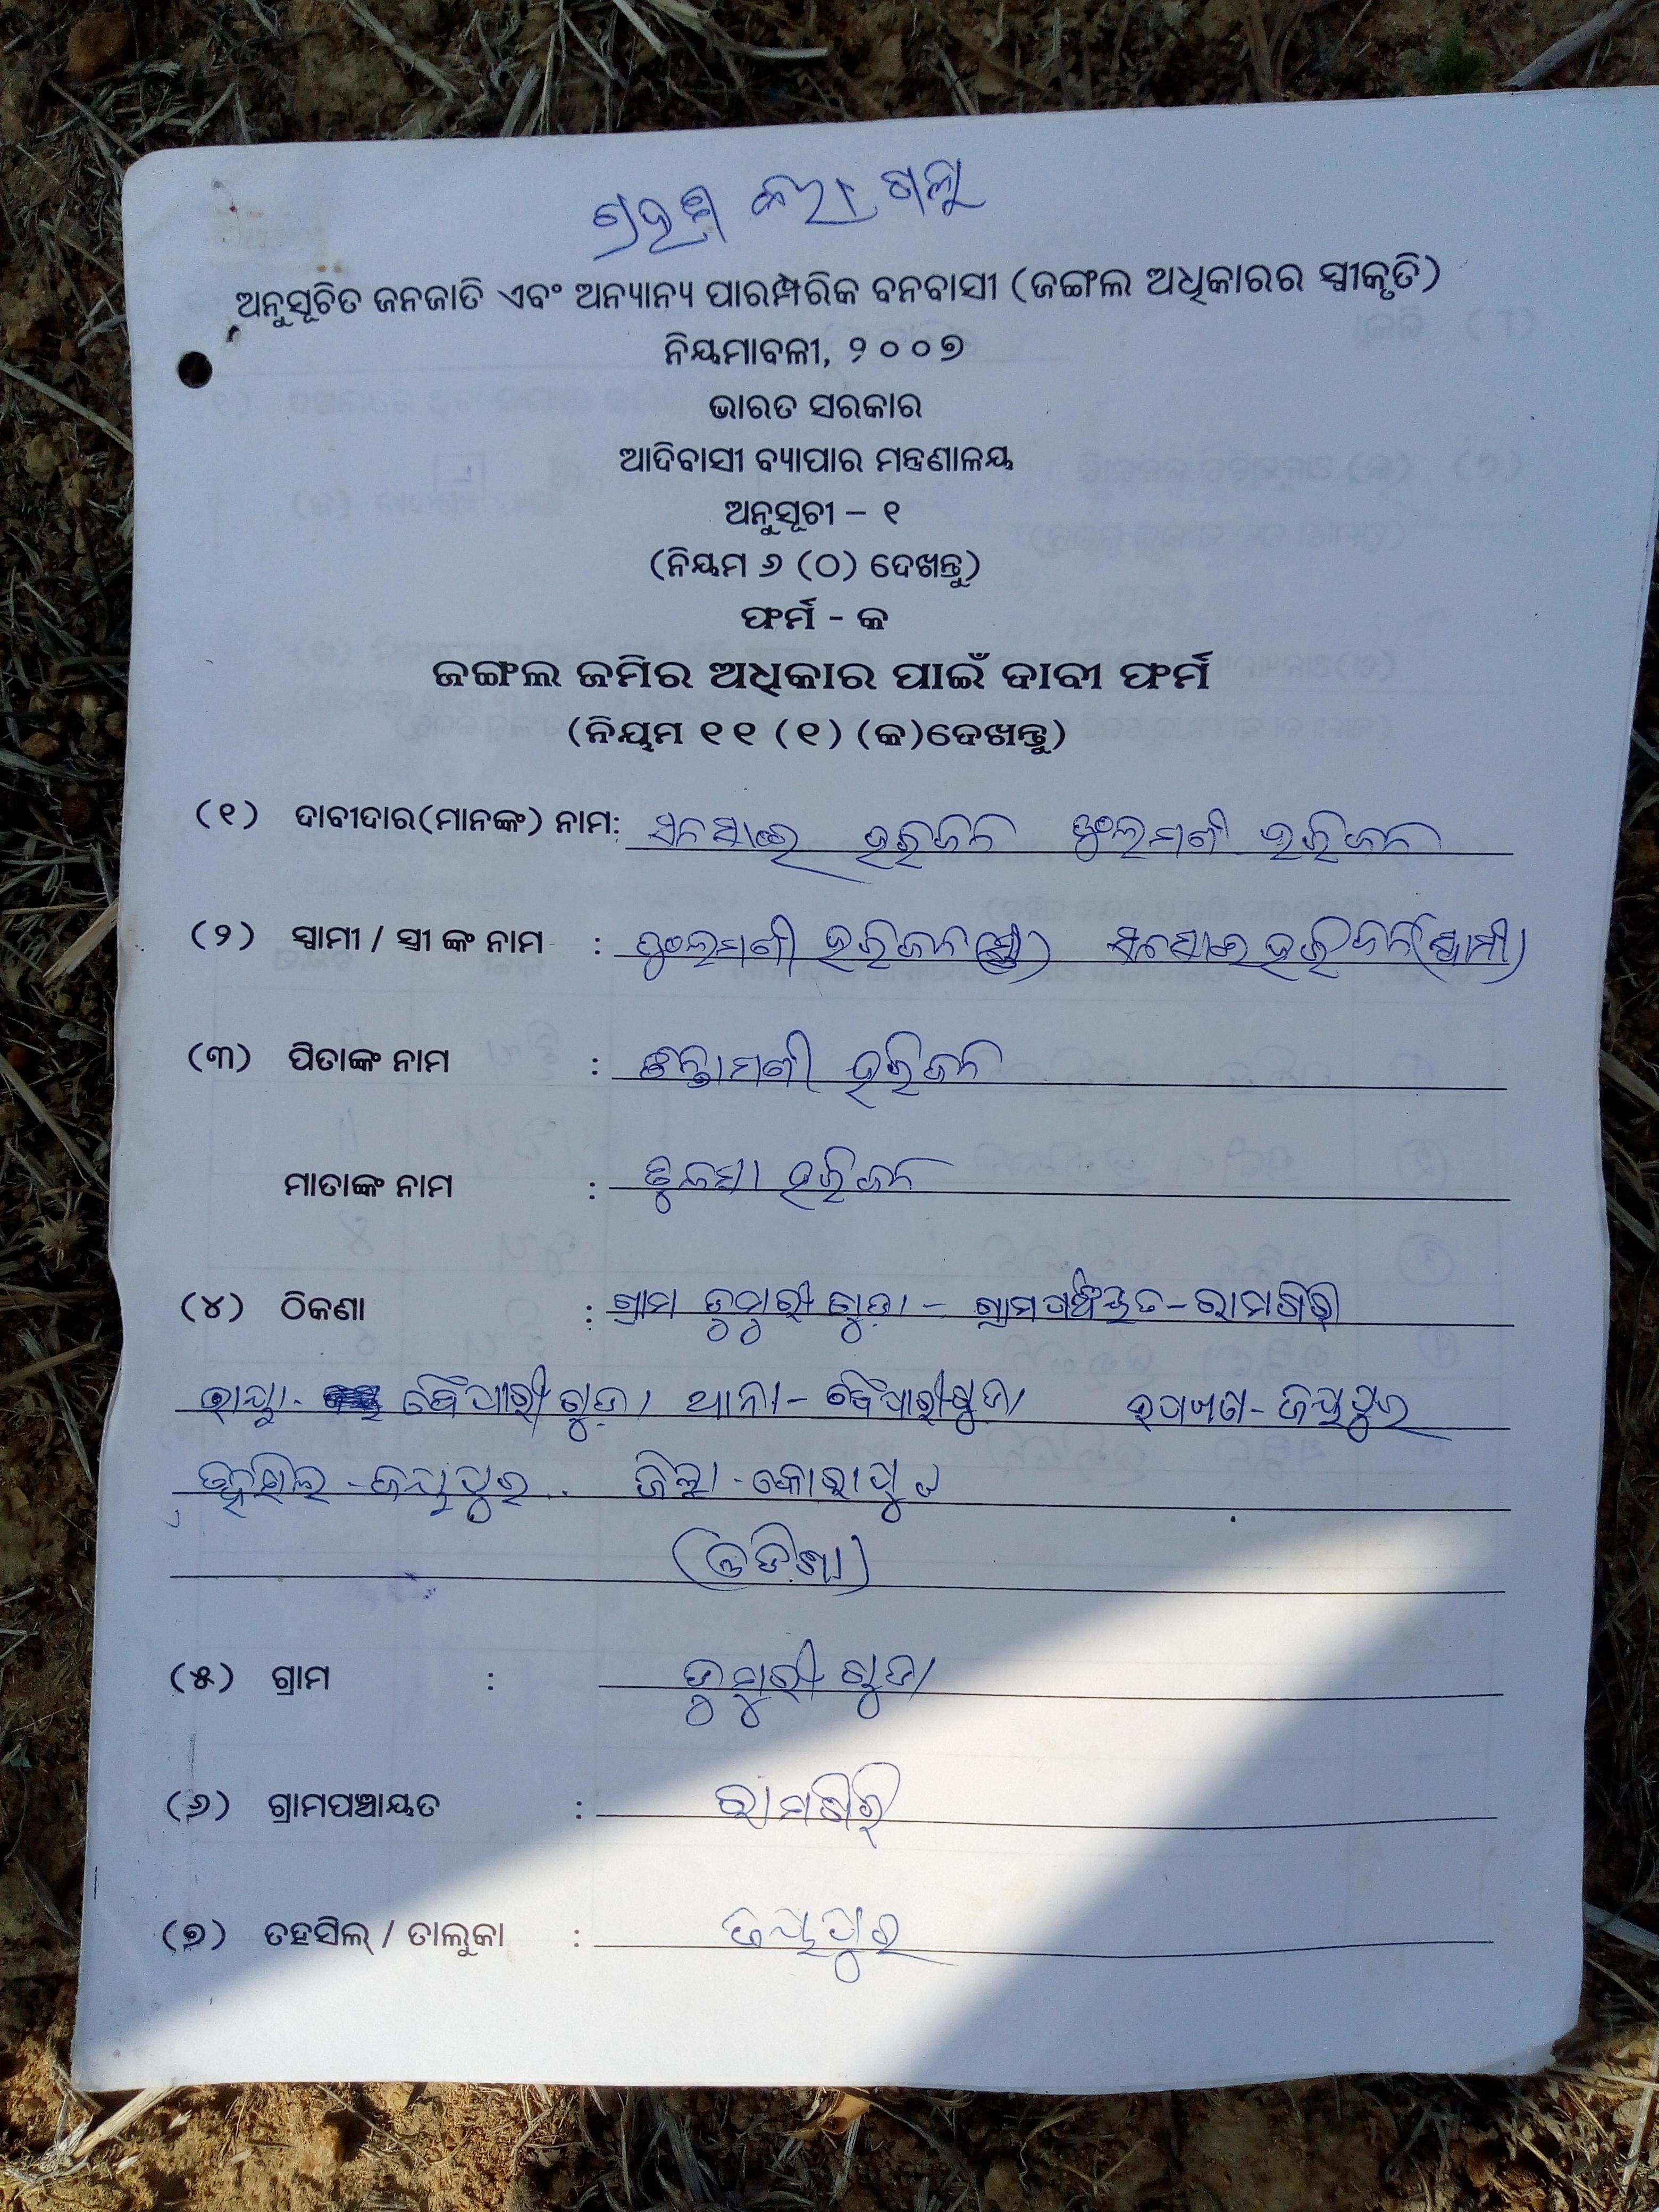 ଅନୁସୂଚିତ ଜନଜାତି ଏବଂ ଅନ୍ୟାନ୍ୟ ପାରମ୍ପରିକ ବନବାସୀ (ଜଙ୍ଗଲ ଅଧିକାରର ସ୍ୱୀକୃତି)
ନିୟମାବଳୀ, ୨୦୦୭
ଭାରତ ସରକାର
ଆଦିବାସୀ ବ୍ୟାପାର ମନ୍ତ୍ରଣାଳୟ
ଅନୁସୂଚୀ – ୧
(ନିୟମ ୬ (ଠ) ଦେଖନ୍ତୁ)
ଫର୍ମ - କ
ଜଙ୍ଗଲ ଜମିର ଅଧିକାର ପାଇଁ ଦାବୀ ଫର୍ମ
(ନିୟମ ୧୧ (୧) (କ)ଦେଖନ୍ତୁ)
(୧) ଦାବୀଦାର(ମାନଙ୍କ) ନାମ: ହରିଜନ ଫୁଲମଣୀ ହରିଜନ
(୨) ସ୍ୱାମୀ / ସ୍ତ୍ରୀ ଙ୍କ ନାମ : ଫୁଲମଣୀ ହରିଜନ (ସ୍ତ୍ରୀ) ହରିଜନ (ସ୍ୱାମୀ)
(୩) ପିତାଙ୍କ ନାମ : ହରିଜନ
ମାତାଙ୍କ ନାମ : ହରିଜନ
(୪) ଠିକଣା : ଗ୍ରାମ ଡୁମୁରୀ ଗୁଡା - ଗ୍ରାମପଞ୍ଚାୟତ - ରାମଗିରି
ବୈପାରୀଗୁଡା ଥାନା - ବୈପାରୀଗୁଡା ଜୟପୁର
ତହସିଲ - ଜୟପୁର ଜିଲ୍ଲା - କୋରାପୁଟ
(ଓଡିଶା)
(୫) ଗ୍ରାମ : ଡୁମୁରୀ ଗୁଡା
(୬) ଗ୍ରାମପଞ୍ଚାୟତ : ରାମଗିରି
(୭) ତହସିଲ୍ / ତାଲୁକା : ଜୟପୁର